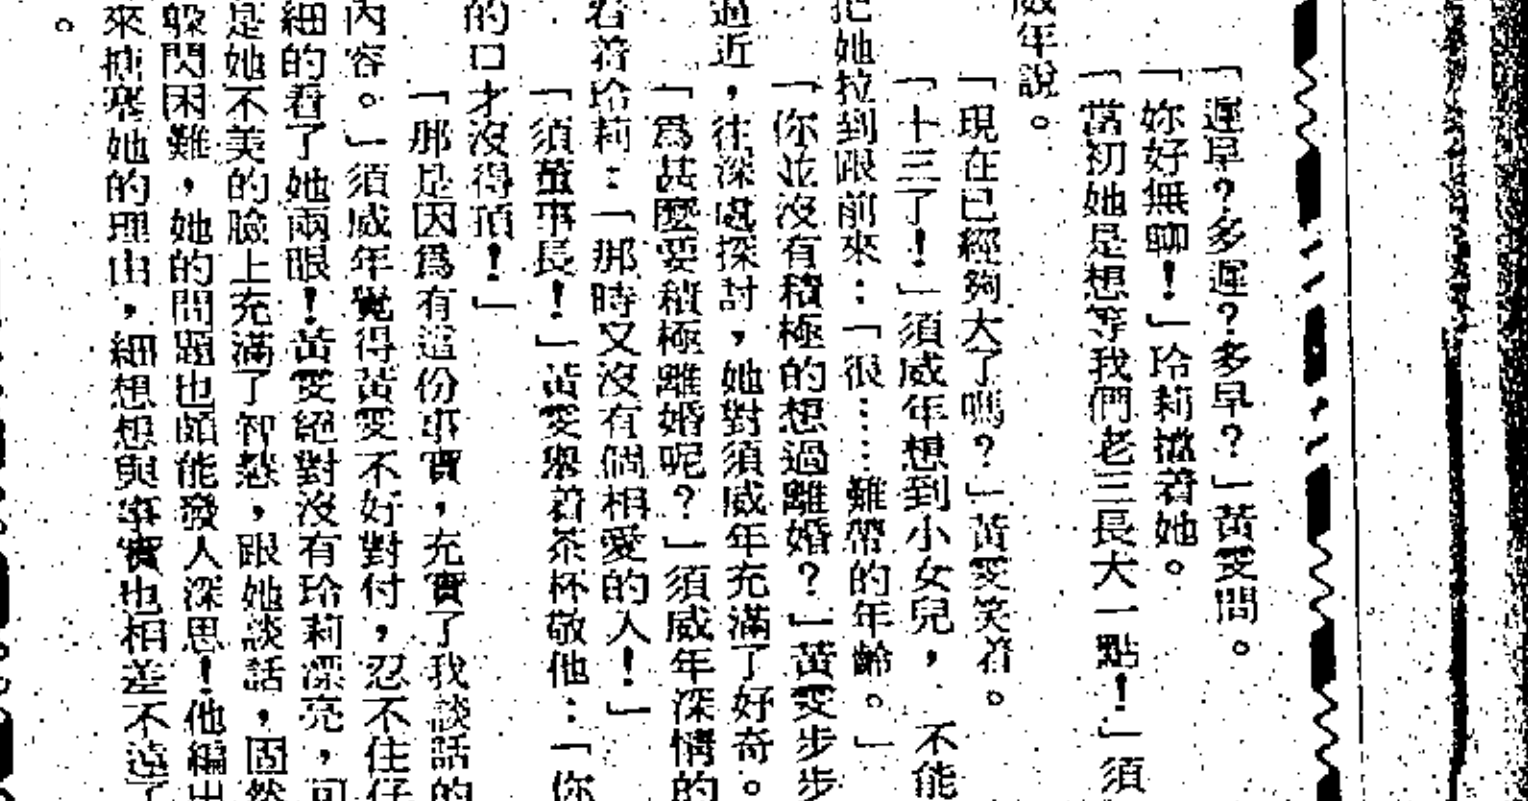 「遲早？多遲？多早？」黃雯問。
「妳好無聊！」玲莉搥着她。
「當初她是想等我們老三長大一點！」須
威年說。
「現在已經夠大了嗎？」黃雯笑着。
「十三了！」須威年想到小女兒，不能
把她拉到跟前來：「很……難帶的年齡。」
「你並沒有積極的想過離婚？」黃雯步步
逼近，往深處探討，她對須威年充滿了好奇。
「爲甚麼要積極離婚呢？」須威年深情的
看着玲莉：「那時又沒有個相愛的人！」
「須董事長！」黃雯舉着茶杯敬他：「你
的口才沒得頂！」
「那是因爲有這份事實，充實了我談話的
內容。」須威年覺得黃雯不好對付，忍不住仔
細的看了她兩眼！黃雯絕對沒有玲莉漂亮，可
是她不美的臉上充滿了智慧，跟她談話，固然
躲閃困難，她的問題也頗能發人深思！他編出
來搪塞她的理由，細想想與事實也相差不遠了
。